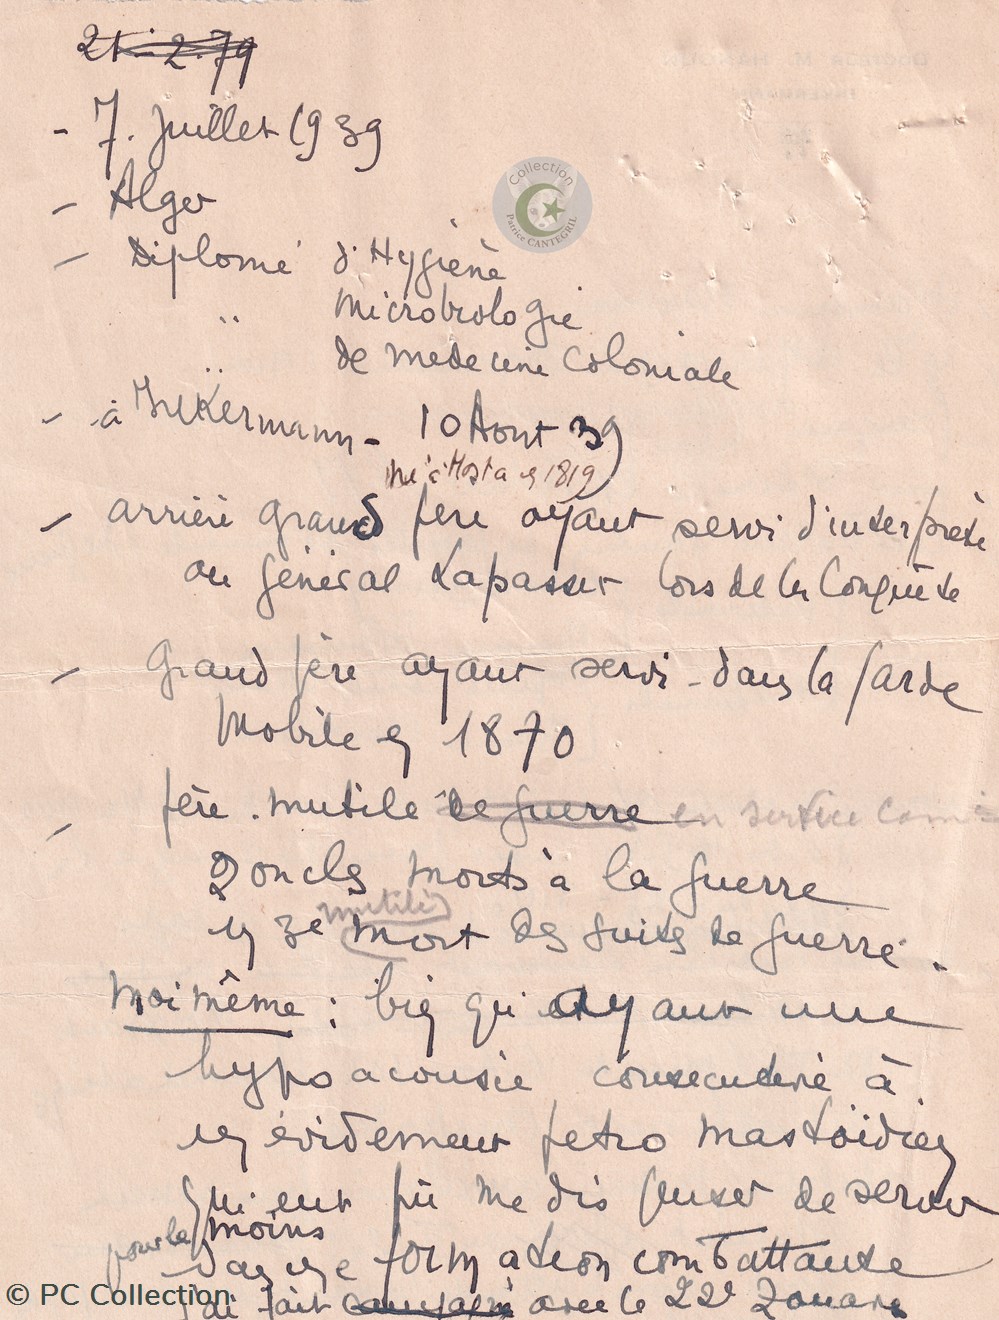 21-2-79
- 7. Juillet 1939
- Alger
- Diplomé d'Hygiène
" Microbiologie
" de medecine Coloniale
- à Inkermann - 10 Aout 39
né à Mosta en 1819
- arrière grand père ayant servi d'interprète
au général Lapasset lors de la Conquète
- Grand père ayant servi dans la Garde
Mobile en 1870
- père mutilé de guerre en service
2 oncles morts à la guerre
mutilés
un 3e mort des suites de guerre.
moi même : bien qu'ayant une
hypoacousie consecutive à
un évidement petro mastoïdien
qui eut pu me dispenser de servir
pour le moins
dans une formation combattante
ai fait campagne avec le 22e Zouaves
Collection
Patrice CANTEGRIL
DOCTEUR M.
INKERMANN
© PC Collection